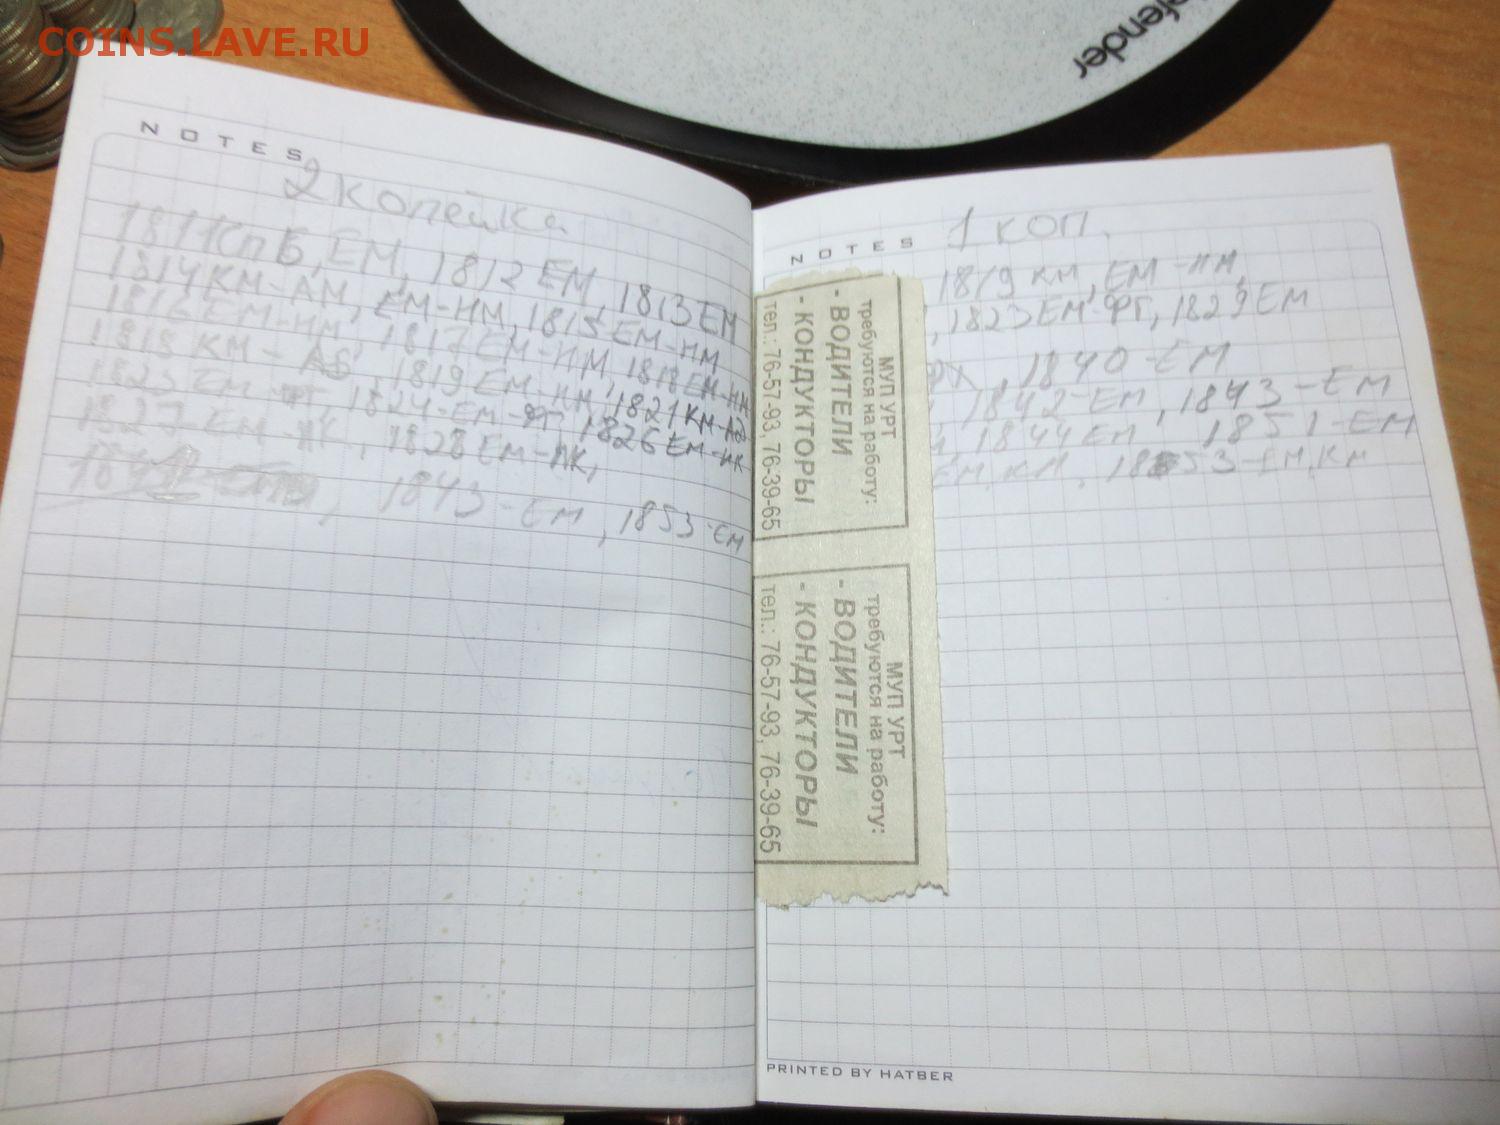 COINS.LAVE.RU
efender
NOTES
2 копейка
1811 СПБ, ЕМ, 1812 ЕМ, 1813 ЕМ
1814 КМ-АМ, ЕМ-НМ, 1815 ЕМ-НМ
1816 ЕМ-НМ, 1817 ЕМ-НМ 1818 ЕМ-НМ
1818 КМ-, 1819 ЕМ-НМ, 1821 КМ-АД
1823 ЕМ- 1824-ЕМ- 1826 ЕМ-ИК
1827 ЕМ-ИК, 1828 ЕМ-ИК,
, 1843-ЕМ, 1853-ЕМ
NOTES
1 коп.
1819 КМ, ЕМ-НМ,
, 1823 ЕМ-ФГ, 1829 ЕМ
, 1840-ЕМ
1842-ЕМ, 1843-ЕМ
1844 ЕМ 1851-ЕМ
ЕМ, КМ, 1853-ЕМ, КМ
МУП УРТ
требуются на работу:
- ВОДИТЕЛИ
- КОНДУКТОРЫ
тел.: 76-57-93, 76-39-65
МУП УРТ
требуются на работу:
- ВОДИТЕЛИ
- КОНДУКТОРЫ
тел.: 76-57-93, 76-39-65
PRINTED BY HATBER